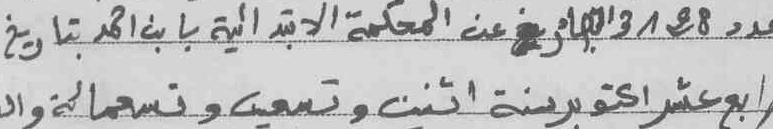 عدد 3128 عن المحكمة الابتدائية بابن احمد بتاريخ
رابع عشر اكتوبر سنة اثنين وتسعين وتسعمائة وال